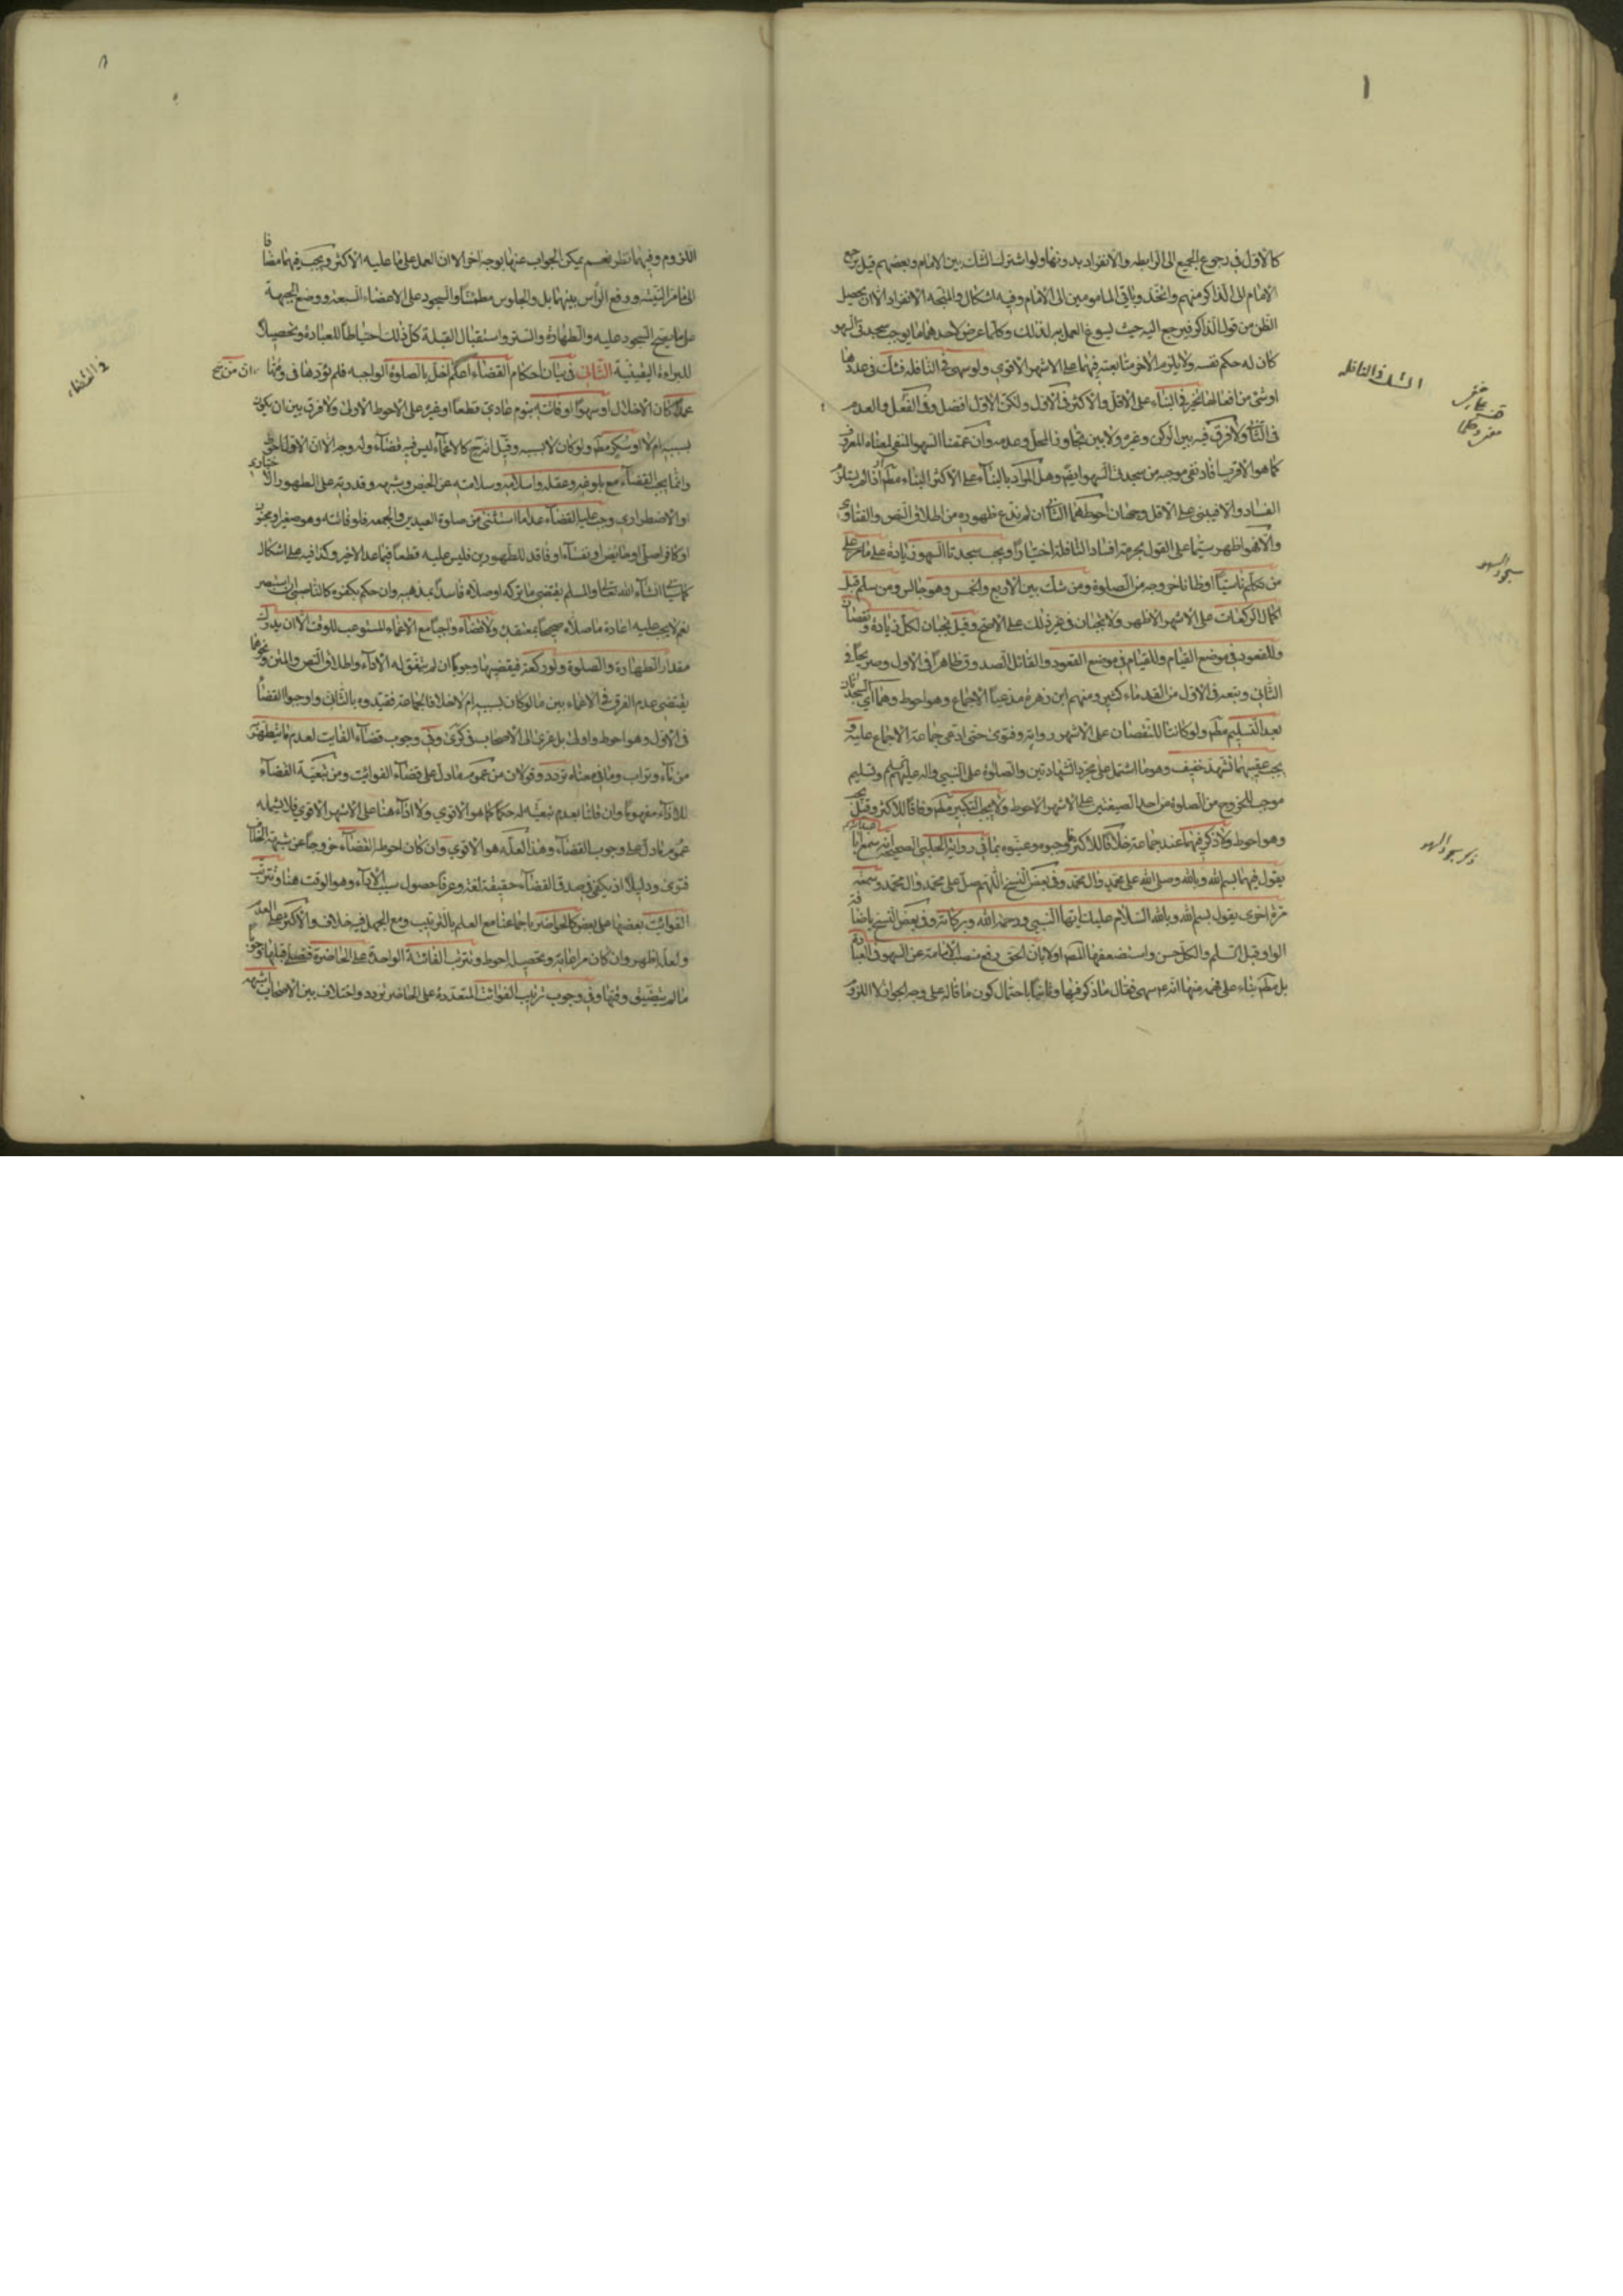 كالاول في رجوع الجميع الى الرابطه والانفراد بدونها ولو اشترك الشك بين الامام وبعضهم قيل يرجع
الامام الى الذاكر منهم واتحد وباقي المامومين الى الامام وفيه اشكال والمتجه الانفراد الا ان يحصل
الظن من قول الذاكر فيرجع اليه حيث يسوغ العمل به لذلك وكلما عرض لاحدهما ما يوجب سجدتي السهو
كان له حكم نفسه ولا يلزم الاخر متابعته فيهما على الاشهر الاقوى ولو سهى في النافله فشك في عددها
او شئ من افعالها تخير في البناء على الاقل والاكثر في الاول ولكن الاول افضل وفي الفعل والعدم
في الثاني ولا فرق فيه بين الركن وغيره ولا بين تجاوز المحل وعدمه وان عممنا السهو المنفي لمعناه المعروف
كما هو الاقرب افاد نفي موجبه من سجدتي السهو ايضا وهل المراد بالبناء على الاكثر البناء مطلقا او اذا لم يستلزم
الفساد والا فيبني على الاقل وجهان احوطهما الثاني ان لم ندع ظهوره من اطلاق النص والفتاوى
والا فهو اظهر سيما على القول بحرمة افساد النافلة اختيارا ويجب سجدتا السهو في زيادة على ما مر على
من تكلم ناسيا او ظانا خروجه من الصلوة ومن شك بين الاربع والخمس وهو جالس ومن سلم قبل
اكمال الركعات على الاشهر الاظهر ولا يجبان في غير ذلك على الاصح وقيل يجبان لكل زيادة ونقصان
وللقعود في موضع القيام وللقيام في موضع القعود والقائل الصدوق ظاهرا في الاول وصريحا في
الثاني وتبعه في الاول من القدماء كثير ومنهم ابن زهره مدعيا الاجماع وهو احوط وهما اي السجدتان
بعد التسليم مطلقا ولو كانتا للنقصان على الاشهر رواية وفتوى حتى ادعى جماعة الاجماع عليه و
يجب عقيبهما تشهد خفيف وهو ما اشتمل على مجرد الشهادتين والصلوة على النبي واله عليهم السلم وتسليم
موجب للخروج من الصلوة من احد الصيغتين على الاشهر الاحوط ولا يجب التكبير مطلقا وفاقا للاكثر وقيل يجب
وهو احوط ولا ذكر فيهما عند جماعة خلافا للاكثر فاوجبوه وعينوه بما في رواية الحلبي الصحيحة انه سمع ابا عبد الله
يقول فيهما بسم الله وبالله وصلى الله على محمد وال محمد وفي بعض النسخ اللهم صل على محمد وال محمد وسمعته
مرة اخرى يقول بسم الله وبالله السلام عليك ايها النبي ورحمة الله وبركاته وفي بعض النسخ باضافة
الواو قبل السلام والكل حسن واستضعفها المصنف اولا بان الحق رفع منصب الامامة عن السهو في العبادة
بل مطلقا بناء على فهمه منها انه سهى فقال ما ذكر فيها وثانيا باحتمال كون ما قاله على وجه الجواز لا اللزوم
الشك في النافله
سجود السهو
ذكر سجود السهو
اللزوم وفيهما نظر نعم يمكن الجواب عنها بوجه اخر الا ان العمل على ما عليه الاكثر ويجب فيهما مضافا
الى ما مر النيه ورفع الراس بينهما بل والجلوس مطمئنا والسجود على الاعضاء السبعة ووضع الجبهة
على ما يصح السجود عليه والطهارة والستر واستقبال القبلة كل ذلك احتياطا للعبادة وتحصيلا
للبراءة اليقينية الثاني في بيان احكام القضاء اعلم ان من اخل بالصلوة الواجبه فلم يؤدها في وقتها
عمدا كان الاخلال او سهوا او فاتته بنوم عادي قطعا او غيره على الاحوط الاولى ولا فرق بين ان يكون
بسببه ام لا او سكر مطلقا ولو كان لا بسببه وقيل انه حينئذ كالاغماء ليس فيه قضاء وله وجه الا ان الاول احوط
وانما يجب القضاء مع بلوغه وعقله واسلامه وسلامته عن الحيض وشبهه وقدرته على الطهور الاختياري
او الاضطراري وجب عليه القضاء عدا ما استثنى من صلوة العيدين والجمعه فلو فاتته وهو صغير او مجنون
او كافر اصلي او حائض او نفساء او فاقد للطهورين فليس عليه قطعا فيما عدا الاخير وكذا فيه على اشكال
كما سياتي انشاء الله تعالى والمسلم يقتضي ما تركه او صلاه فاسدا بمذهبه وان حكم بكفره كالناصبي ان استبصر
نعم لا يجب عليه اعادة ما صلاه صحيحا بمعتقده ولا قضاء واجبا مع الاغماء المستوعب للوقت الا ان يدرك
مقدار الطهارة والصلوة ولو ركعة فيقضيها وجوبا ان لم يتفق له الاداء واطلاق النص والمتن ونحوهما
يقتضي عدم الفرق في الاغماء بين ما لو كان بسببه ام لا خلافا لجماعة فقيدوه بالثاني واوجبوا القضاء
في الاول وهو احوط واولى بل عزى الى الاصحاب في كرى وفي وجوب قضاء الفايت لعدم ما يتطهر به
من ماء وتراب وما في معناه تردد وقولان من عموم ما دل على قضاء الفوائت ومن تبعية القضاء
للاداء مفهوما وان قلنا بعدم تبعيته له حكما كما هو الاقوى ولا اداء هنا على الاشهر الاقوى فلا يشمله
عموم ما دل على وجوب القضاء وهذا لعله هو الاقوى وان كان احوطه القضاء خروجا عن شبهة الخلاف
فتوى ودليلا اذ يكفي في صدق القضاء حقيقة لغة وعرفا حصول سبب الاداء وهو الوقت هنا وتترتب
الفوائت بعضها على بعض كالحواضر باجماعنا مع العلم بالترتيب ومع الجهل فيه خلاف والاكثر على العدم
ولعله اظهر وان كان مراعاته وتحصيله احوط وتترتب الفائتة الواحدة على الحاضرة فتصلى قبلها وجوبا
ما لم يتضيق وقتها وفي وجوب ترتيب الفوائت المتعددة على الحاضر تردد واختلاف بين الاصحاب اشهره
في القضاء